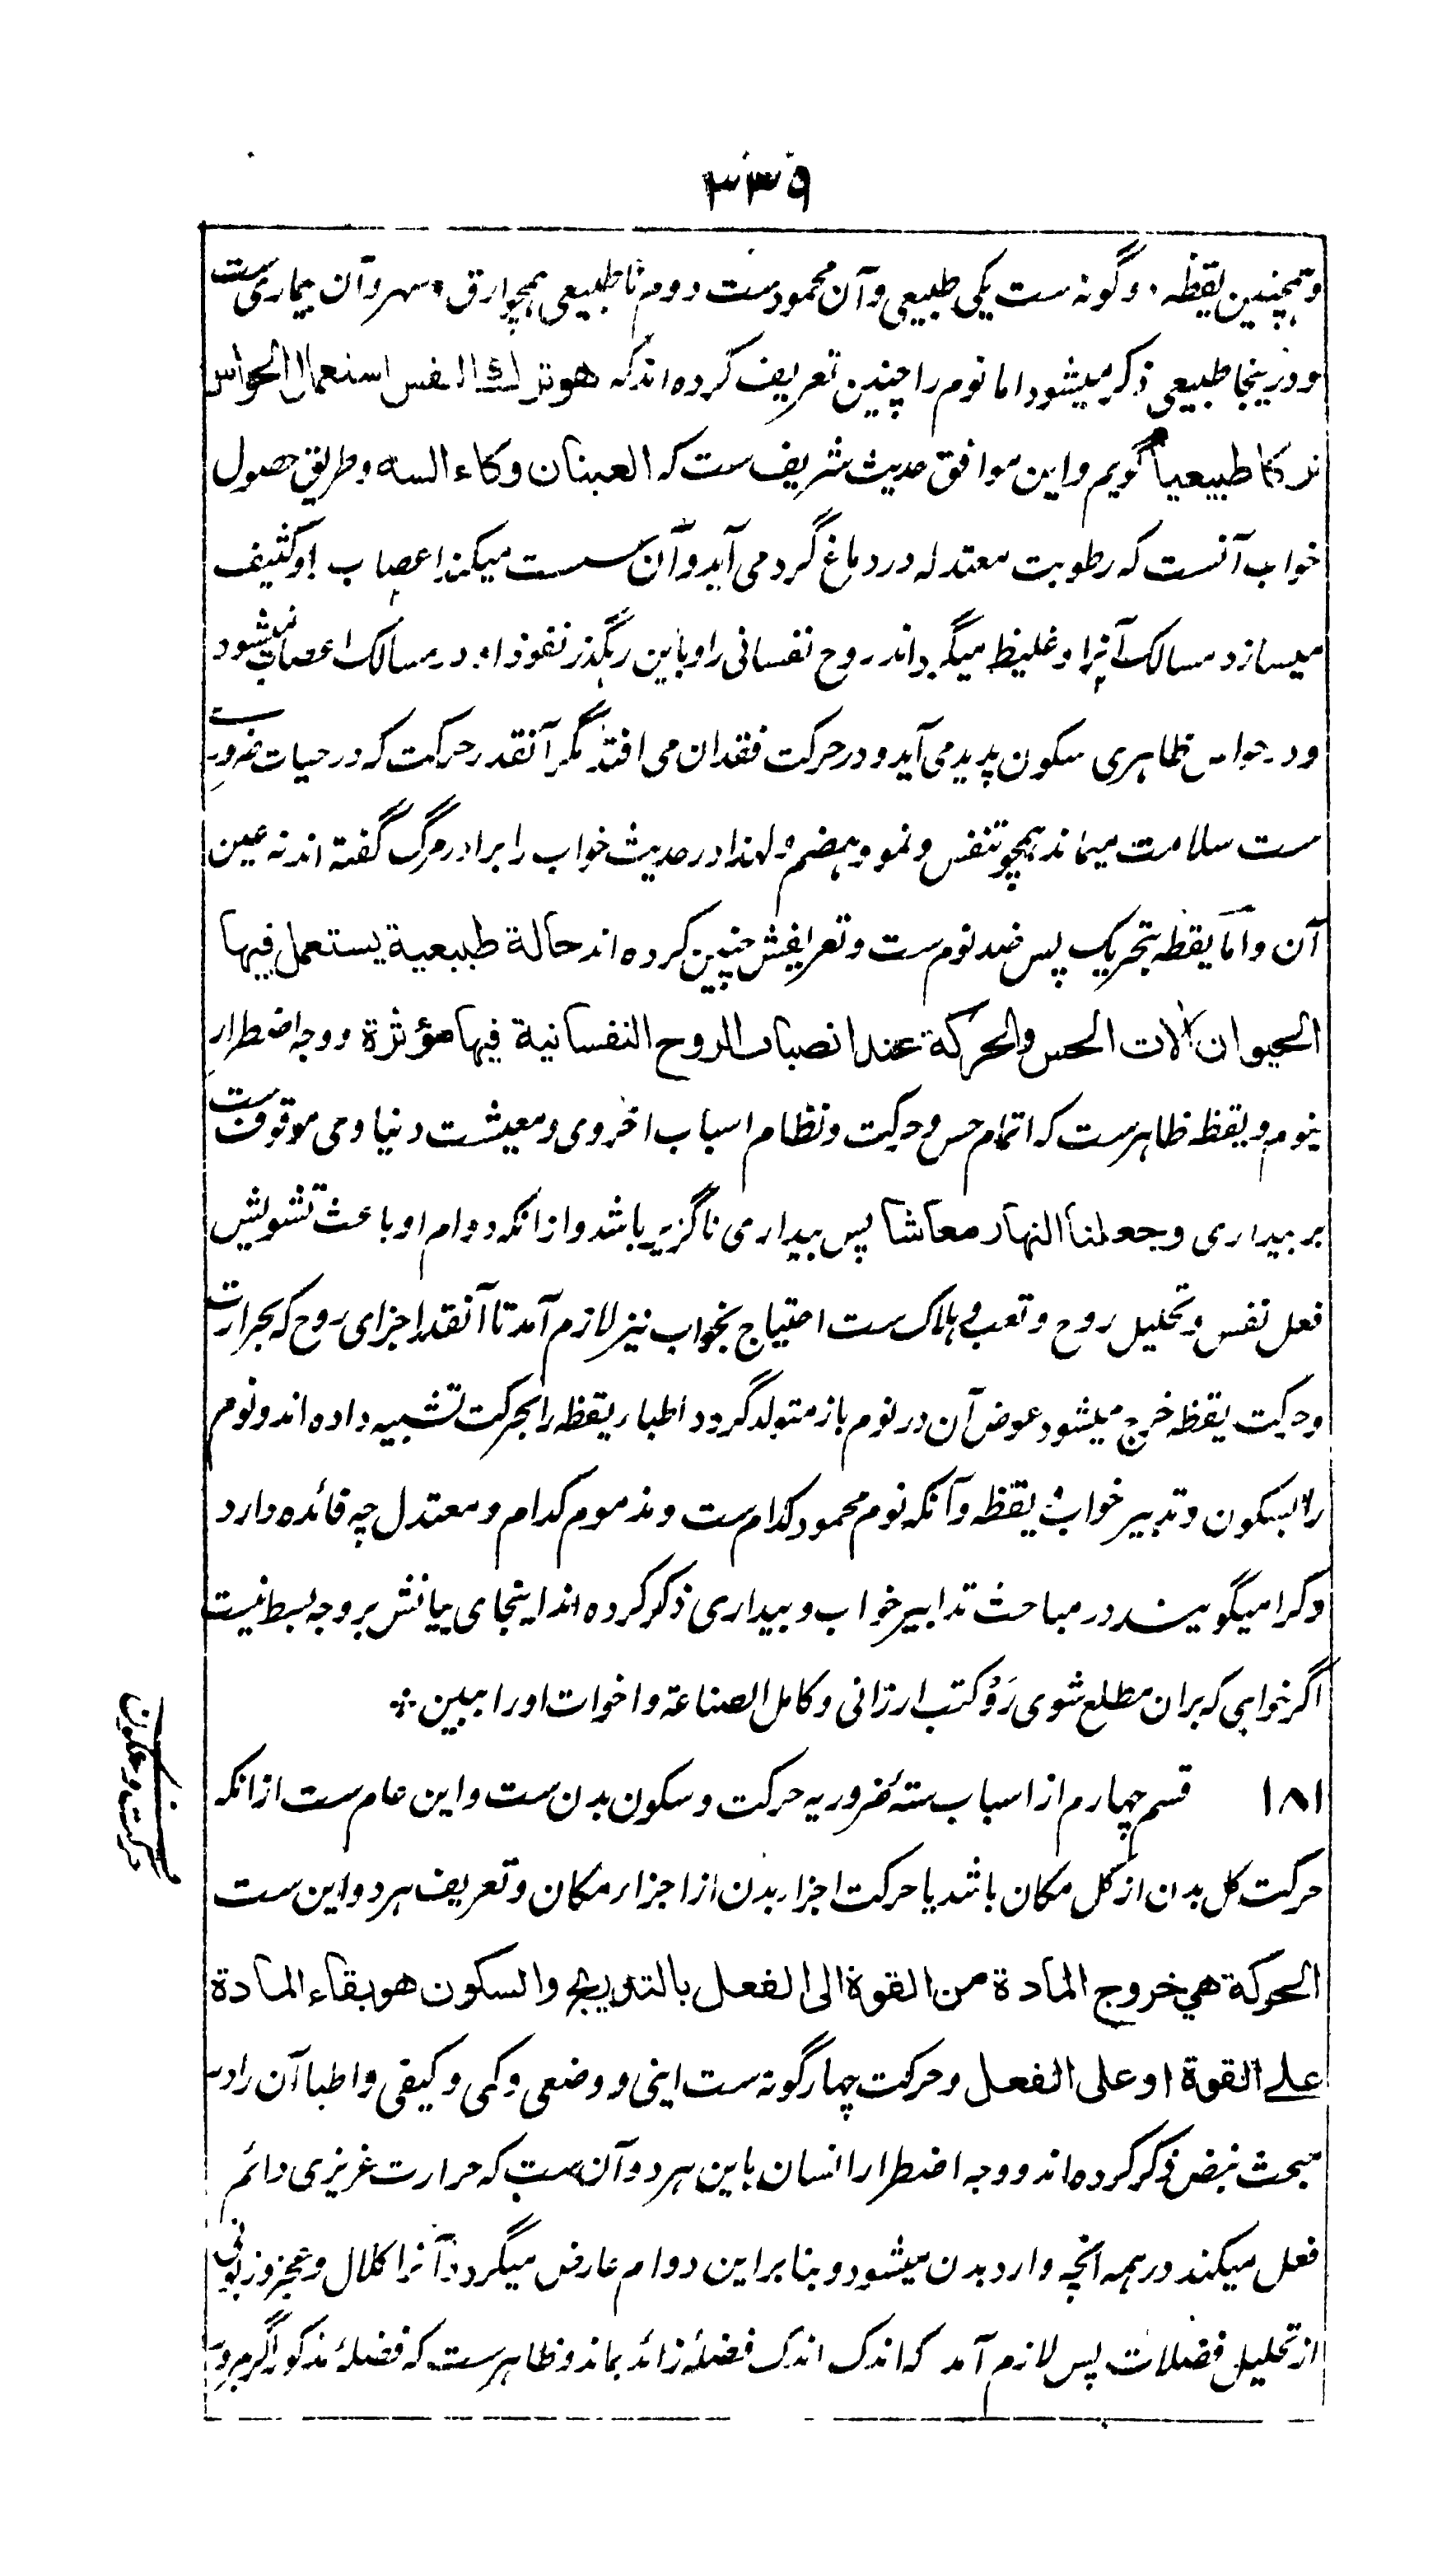 ۳۳۹
وهمچنین یقظه دوگونه ست یکی طبیعی وآن محمودست دوم ناطبیعی همچو ارق وسهر وآن بیماری ست
ودرینجا طبیعی ذکر میشود اما نوم را چنین تعریف کرده اند که هو ترك النفس استعمال الحواس
ترکا طبیعیا گویم واین موافق حدیث شریف ست که العینان وکاء السه وطریق حصول
خواب آنست که رطوبت معتدله در دماغ گرد می آید وآن سست میکند اعصاب او کثیف
میسازد مسالک آنرا وغلیظ میگرداند روح نفسانی را وباین رهگذر نفوذ او در مسالک اعصاب نمیشود
ودر حواس ظاهری سکون پدید می آید ودر حرکت فقدان می افتد مگر آنقدر حرکت که در حیات ضروری
ست سلامت میماند همچو تنفس ونمو وهضم ولهذا در حدیث خواب را برادر مرگ گفته اند نه عین
آن واما یقظه بتحریک پس ضد نوم ست وتعریفش چنین کرده اند حالة طبیعیة یستعمل فیها
الحیوان آلات الحس والحرکة عند انصباب الروح النفسانیة فیها مؤثرة ووجه اضطرار
بنوم ویقظه ظاهرست که اتمام حس وحرکت ونظام اسباب اخروی ومعیشت دنیاوی موقوف ست
بر بیداری وجعلنا النهار معاشا پس بیداری ناگزیر باشد وازانکه دوام او باعث تشویش
فعل نفس وتحلیل روح وتعب وهلاک ست احتیاج بخواب نیز لازم آمد تا آنقدر اجزای روح که بحرارت
وحرکت یقظه خرج میشود عوض آن در نوم باز متولد گردد اطباء یقظه را بحرکت تشبیه داده اند ونوم
را بسکون وتدبیر خواب ویقظه وآنکه نوم محمود کدام ست ومذموم کدام ومعتدل چه فائده دارد
وکرا میگویند در مباحث تدابیر خواب وبیداری ذکر کرده اند اینجای بیانش بر وجه بسط نیست
اگر خواهی که بران مطلع شوی رو کتب ارزانی وکامل الصناعة واخوات او را ببین
۱۸۱ قسم چهارم از اسباب ستهٔ ضروریه حرکت وسکون بدن ست واین عام ست ازانکه
حرکت وسکون
حرکت کل بدن از کل مکان باشد یا حرکت اجزاء بدن از اجزاء مکان وتعریف هر دو این ست
الحرکة هی خروج المادة من القوة الی الفعل بالتدریج والسکون هو بقاء المادة
علے القوة او علی الفعل وحرکت چهارگونه ست اینی ووضعی وکمی وکیفی واطبا آن را در
مبحث نبض ذکر کرده اند ووجه اضطرار انسان باین هر دو آن ست که حرارت غریزی دائم
فعل میکند در همه انچه وارد بدن میشود وبنا بر این دوام عارض میگردد آنرا کلال وعجز وزبونی
از تحلیل فضلات پس لازم آمد که اندک اندک فضلهٔ زائد بماند وظاهرست که فضلهٔ مذکور اگر